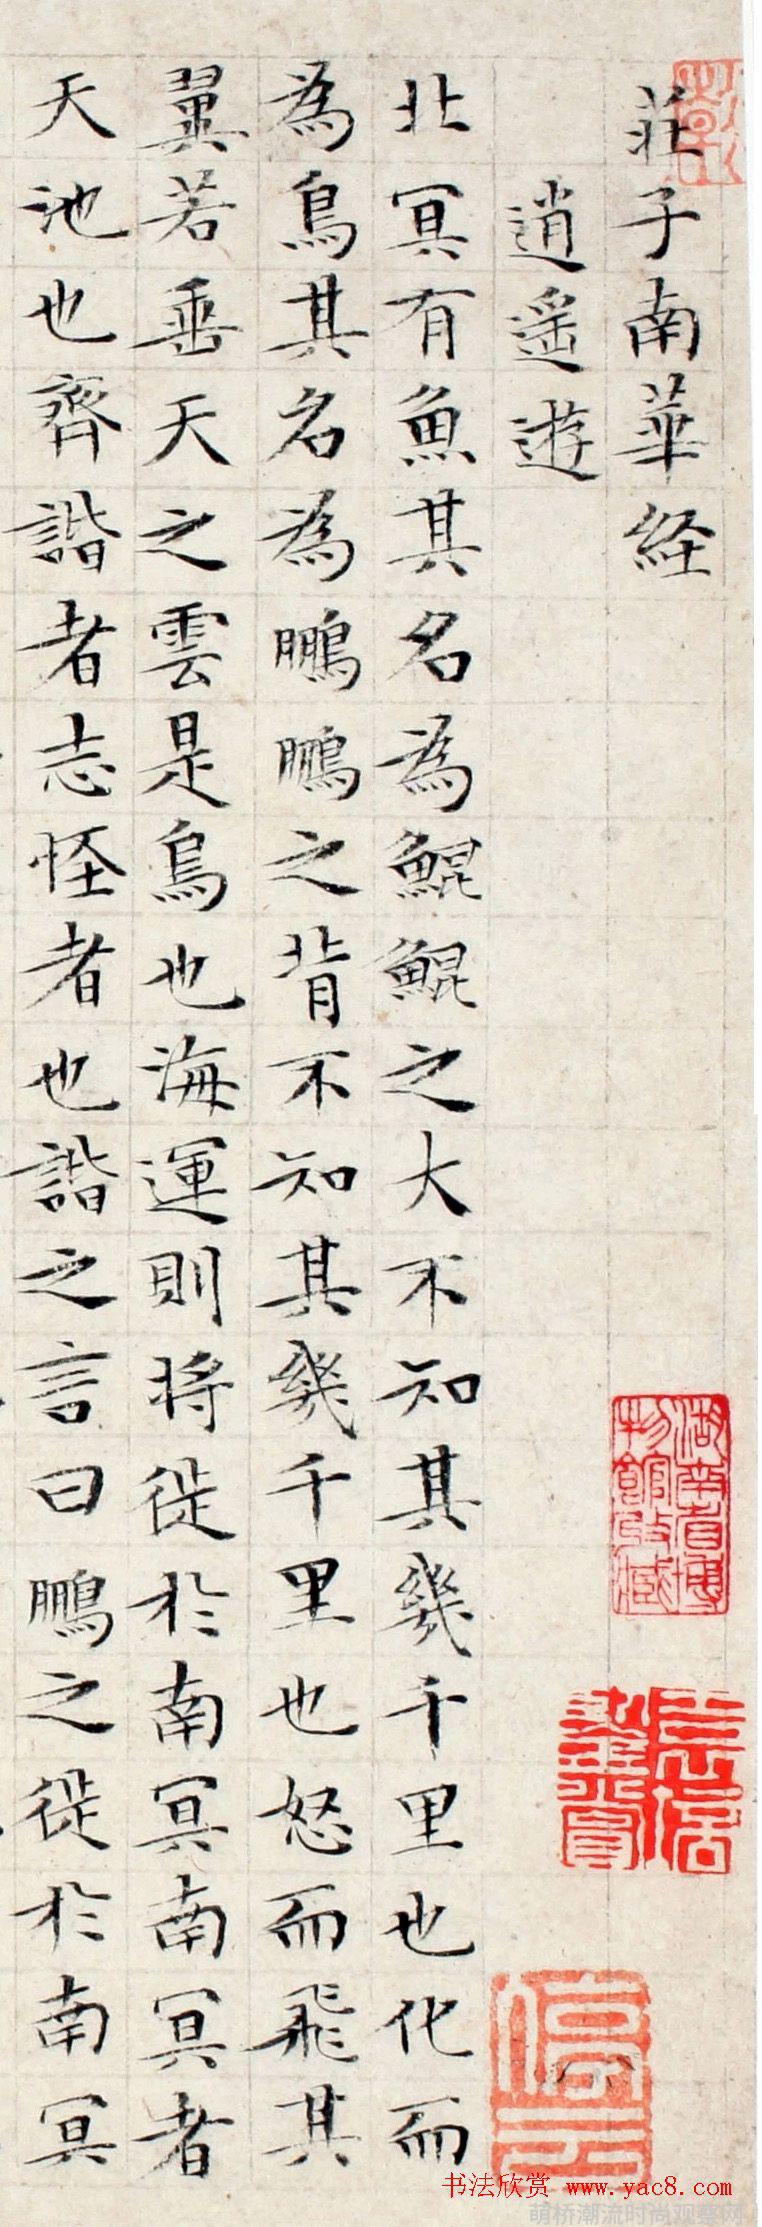 莊子南華経
逍遥遊
北冥有魚其名為鯤鯤之大不知其幾千里也化而
為鳥其名為鵬鵬之背不知其幾千里也怒而飛其
翼若垂天之雲是鳥也海運則将徙於南冥南冥者
天池也齊諧者志怪者也諧之言曰鵬之徙於南冥
湖南省博
物館收藏
停云
书法欣赏 www.yac8.com
萌桥潮流时尚观察网